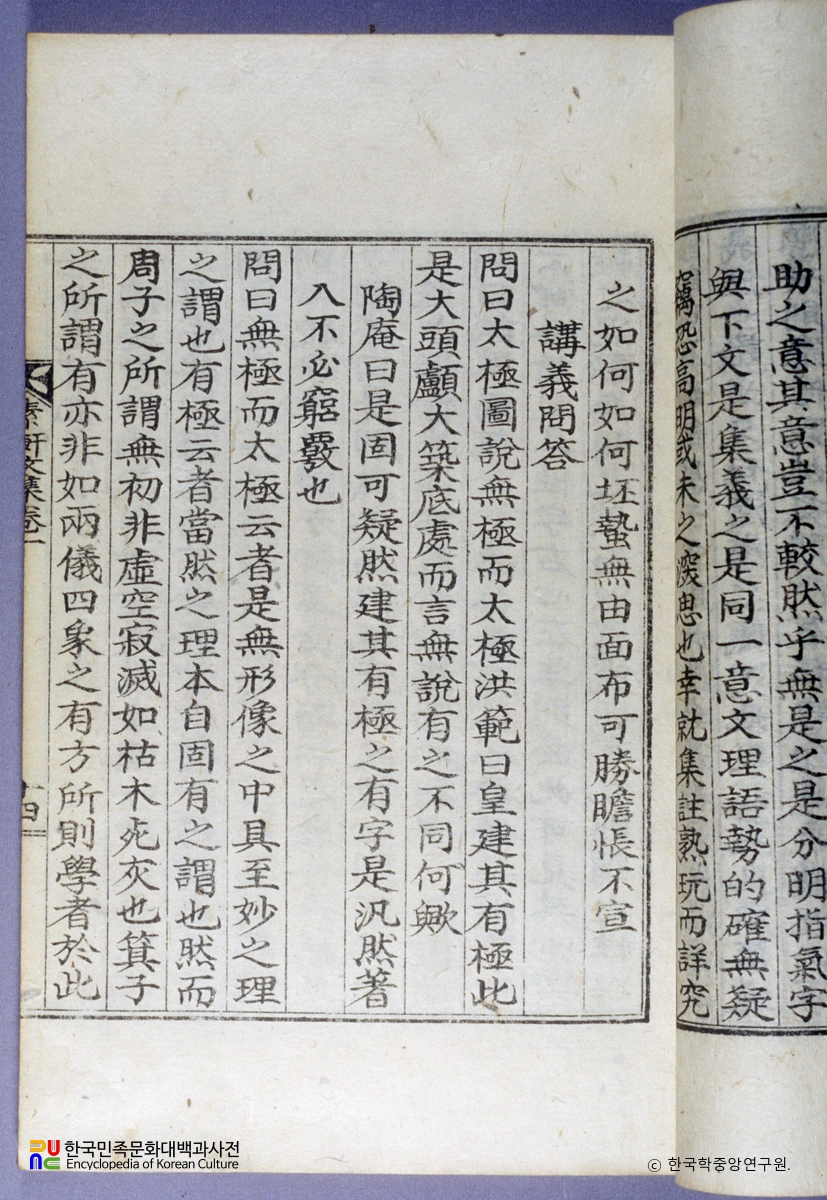 助之意其意豈不較然乎無是之是分明指氣字
與下文是集義之是同一意文理語勢的確無疑
竊恐高明或未之深思也幸就集註熟玩而詳究
之如何如何坯蟄無由面布可勝瞻悵不宣
講義問答
問曰太極圖說無極而太極洪範曰皇建其有極此
是大頭顱大築底處而言無說有之不同何歟
陶庵曰是固可疑然建其有極之有字是汎然著
入不必窮覈也
問曰無極而太極云者是無形像之中具至妙之理
之謂也有極云者當然之理本自固有之謂也然而
周子之所謂無初非虛空寂滅如枯木死灰也箕子
之所謂有亦非如兩儀四象之有方所則學者於此
素軒文集卷二
十四
한국민족문화대백과사전
Encyclopedia of Korean Culture
© 한국학중앙연구원.